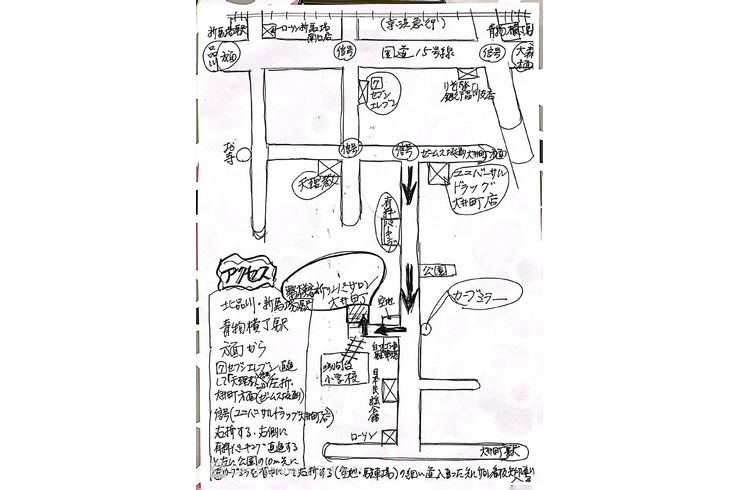 (京浜急行)
新馬場駅
ローソン新馬場
青物横丁駅
品川
方面
信号
国道15号線
信号
大森
方面
7
セブン
イレブン
お寺
信号
信号
ゼームス坂通り
大井町方面
天理教
ユニバーサル
ドラッグ
大井町店
有料
パーキング
公園
カーブミラー
サロン
大井町
空地
駐車場
小学校
日本民謡会館
ローソン
大井町駅
アクセス
北品川・新馬場駅
青物横丁駅
方面から
7セブンイレブン直進
して天理教信号左折
大井町方面(ゼームス坂通り)
信号(ユニバーサルドラッグ大井町店)
右折する、右側に
有料パーキング直進する
と左に公園の10m先に
カーブミラーを背中にして右折する(空地・駐車場)の細い道入る